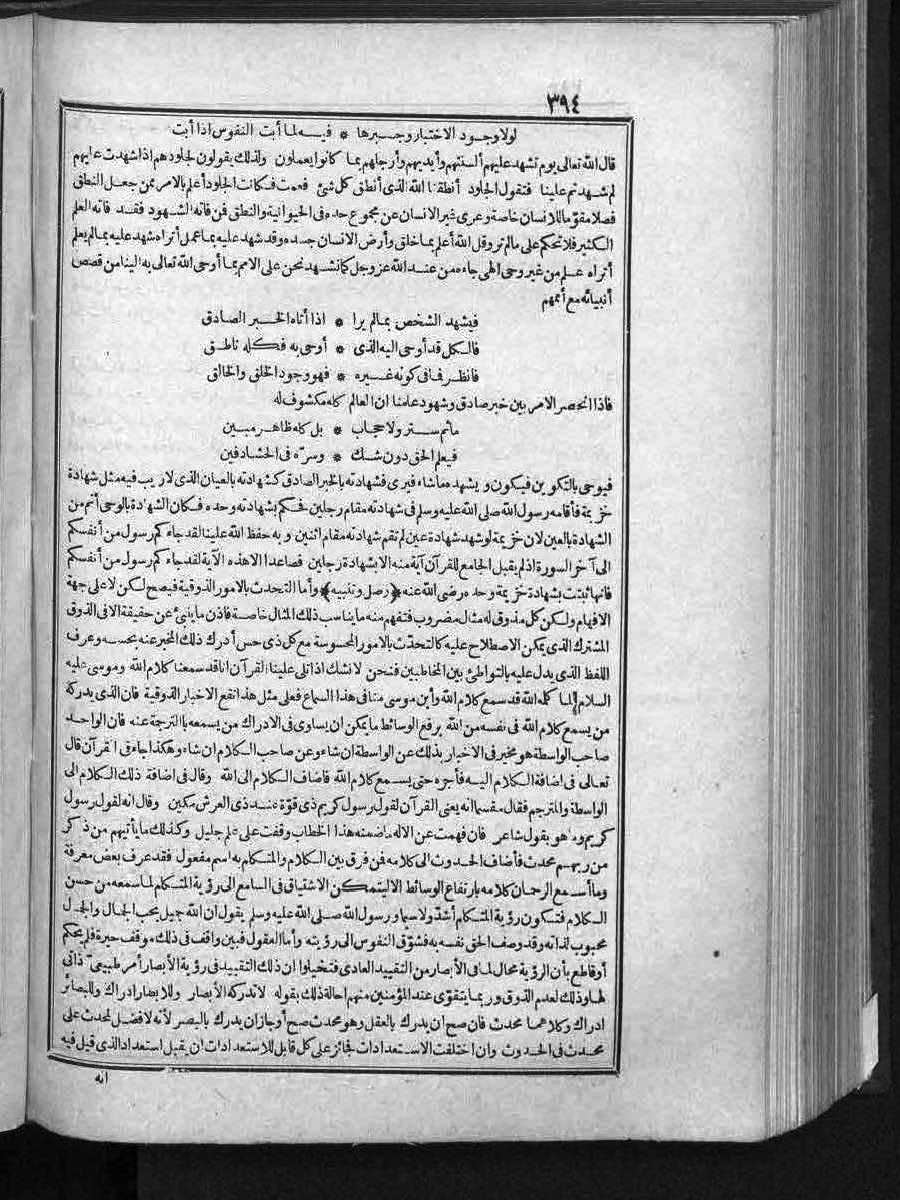 ٣٩٤
لولا وجود الاختبار وجبرها * فيه لما أبت النفوس اذا أبت
قال الله تعالى يوم تشهد عليهم ألسنتهم وأيديهم وأرجلهم بما كانوا يعملون ولذلك يقولون لجلودهم اذا شهدت عليهم
لم شهدتم علينا فتقول الجلود أنطقنا الله الذى أنطق كل شئ فعمت فكانت الجلود أعلم بالامر ممن جعل النطق
فصلا مقوّما للانسان خاصة وعرى غير الانسان عن مجموع حده فى الحيوانية والنطق فن فاته الشهود فقد فاته العلم
الكثير فلا تحكم على مالم تر وقل الله أعلم بما خلق وأرض الانسان جسده وقد شهد عليه بما عمل أتراه شهد عليه بما لم يعلم
أتراه علم من غير وحى الهى جاءه من عند الله عز وجل كما نشهد نحن على الامم بما أوحى الله تعالى به الينا من قصص
أنبيائه مع أممهم
فيشهد الشخص بما لم يرا * اذا أتاه الخبر الصادق
فالكل قد أوحى اليه الذى * أوحى به فكله ناطق
فانظر فما فى كونه غيره * فهو وجود الخلق والخالق
فاذا انحصر الامر بين خبر صادق وشهود علمنا ان العالم كله مكشوف له
ماثم ستر ولا حجاب * بل كله ظاهر مبين
فيعلم الحق دون شك * وسرّه فى الحشا دفين
فيوحى بالتكوين فيكون ويشهد ما شاء فيرى فشهادته بالخبر الصادق كشهادته بالعيان الذى لا ريب فيه مثل شهادة
خزيمة فأقامه رسول الله صلى الله عليه وسلم فى شهادته مقام رجلين فحكم بشهادته وحده فكان الشهادة بالوحى أتم من
الشهادة بالعين لان خزيمة لو شهد شهادة عين لم تقم شهادته مقام اثنين وبه حفظ الله علينا لقد جاءكم رسول من أنفسكم
الى آخر السورة اذ لم يقبل الجامع للقرآن آية منه الا بشهادة رجلين فصاعدا الا هذه الآية لقد جاءكم رسول من أنفسكم
فانها ثبتت بشهادة خزيمة وحده رضى الله عنه ﴿وصل وتنبيه﴾ وأما التحدث بالامور الذوقية فيصح لكن لا على جهة
الافهام ولكن كل مذوق له مثال مضروب فتفهم منه ما يناسب ذلك المثال خاصة فاذن ما ينبئ عن حقيقة الا فى الذوق
المشترك الذى يمكن الاصطلاح عليه كالتحدّث بالامور المحسوسة مع كل ذى حس أدرك ذلك المخبر عنه بحسه وعرف
اللفظ الذى يدل عليه بالتواطئ بين المخاطبين فنحن لا نشك اذا تلى علينا القرآن انا قد سمعنا كلام الله وموسى عليه
السلام لما كلمه الله قد سمع كلام الله وأين موسى منا فى هذا السماع فعلى مثل هذا تقع الاخبار الذوقية فان الذى يدركه
من يسمع كلام الله فى نفسه من الله برفع الوسائط ما يمكن ان يساوى فى الادراك من يسمعه بالترجمة عنه فان الواحد
صاحب الواسطة هو مخير فى الاخبار بذلك عن الواسطة ان شاء وعن صاحب الكلام ان شاء وهكذا جاء فى القرآن قال
تعالى فى اضافة الكلام اليه فأجره حتى يسمع كلام الله فاضاف الكلام الى الله وقال فى اضافة ذلك الكلام الى
الواسطة والمترجم فقال مقسما انه يعنى القرآن لقول رسول كريم ذى قوّة عند ذى العرش مكين وقال انه لقول رسول
كريم وما هو بقول شاعر فان فهمت عن الاله ما ضمنه هذا الخطاب وقفت على علم جليل وكذلك ما يأتيهم من ذكر
من ربهم محدث فأضاف الحدوث الى كلامه فن فرق بين الكلام والمتكلم به اسم مفعول فقد عرف بعض معرفة
وما أسمع الرحمان كلامه بارتفاع الوسائط الا ليتمكن الاشتياق فى السامع الى رؤية المتكلم لما سمعه من حسن
الكلام فتكون رؤية المتكلم أشدّ ولا سيما ورسول الله صلى الله عليه وسلم يقول ان الله جميل يحب الجمال والجمال
محبوب لذاته وقد وصف الحق نفسه به فشوّق النفوس الى رؤيته وأما العقول فبين واقف فى ذلك موقف حيرة فلم يحكم
أو قاطع بأن الرؤية محال لما فى الأبصار من التقييد العادى فتخيلوا ان ذلك التقييد فى رؤية الأبصار أمر طبيعىّ ذاتى
لها وذلك لعدم الذوق وربما يتقوى عند المؤمنين منهم احالة ذلك بقوله لا تدركه الأبصار وللابصار ادراك وللبصائر
ادراك وكلاهما محدث فان صح ان يدرك بالعقل وهو محدث صح أو جاز ان يدرك بالبصر لأنه لا فضل لمحدث على
محدث فى الحدوث وان اختلفت الاستعدادات فجائز على كل قابل للاستعدادات ان يقبل استعداد الذى قيل فيه
انه